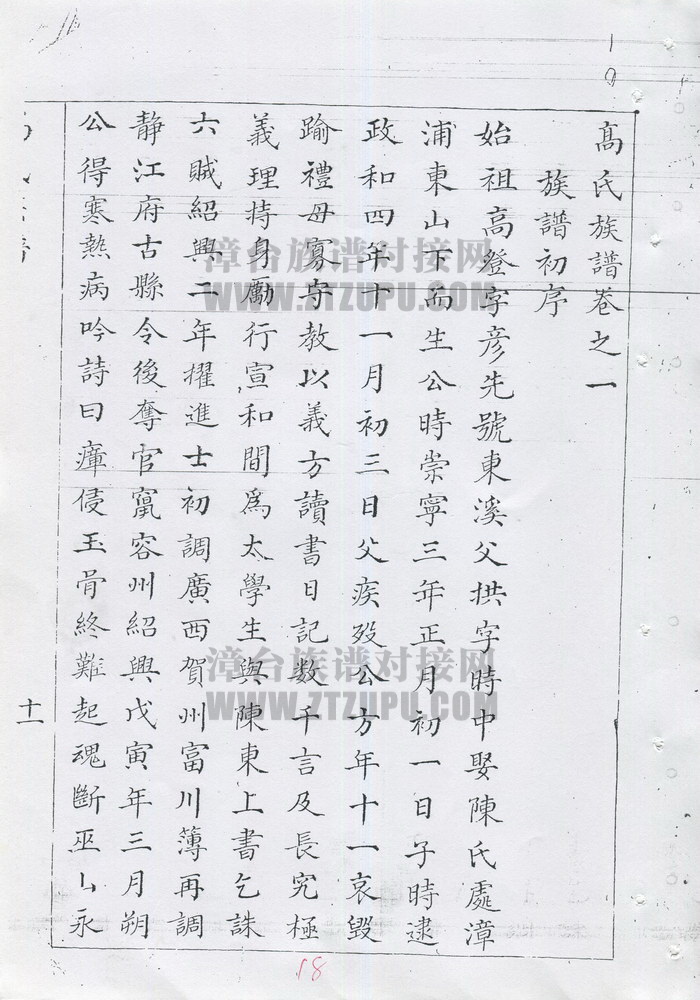 高氏族譜卷之一
族譜初序
始祖高登字彦先號東溪父拱字時中娶陳氏處漳
浦東山下而生公時崇寧三年正月初一日子時逮
政和四年十一月初三日父疾歿公方年十一哀毀
踰禮母寡守教以義方讀書日記数千言及長究極
義理持身勵行宣和間爲太學生與陳東上書乞誅
六賊紹興二年擢進士初調廣西賀州富川簿再調
靜江府古縣令後奪官竄容州紹興戊寅年三月朔
公得寒熱病吟詩曰瘴侵玉骨終難起魂斷巫山永
十一
18
漳台族谱对接网
WWW.ZTZUPU.COM
漳台族谱对接网
WWW.ZTZUPU.COM